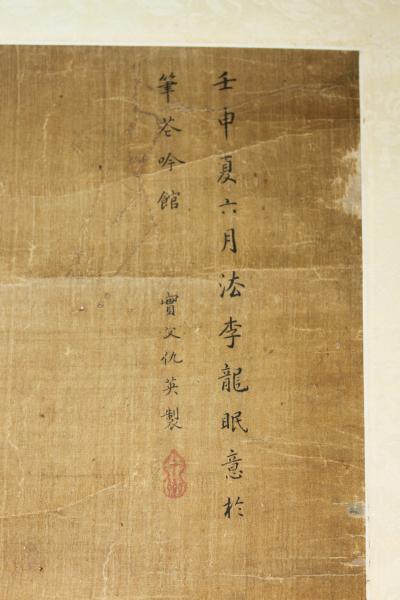 壬申夏六月法李龍眠意於
筆花吟館
實父仇英製